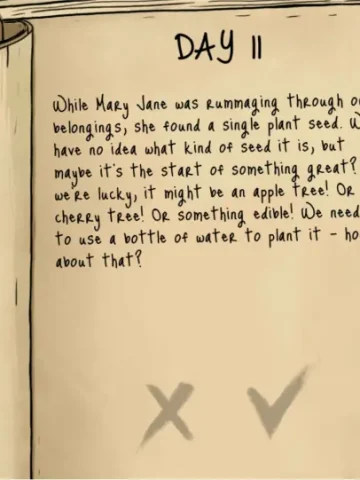 DAY 11
While Mary Jane was rummaging through
belongings, she found a single plant seed.
have no idea what kind of seed it is, but
maybe it's the start of something great?
we're lucky, it might be an apple tree! Or
cherry tree! Or something edible! We need
to use a bottle of water to plant it - 
about that?